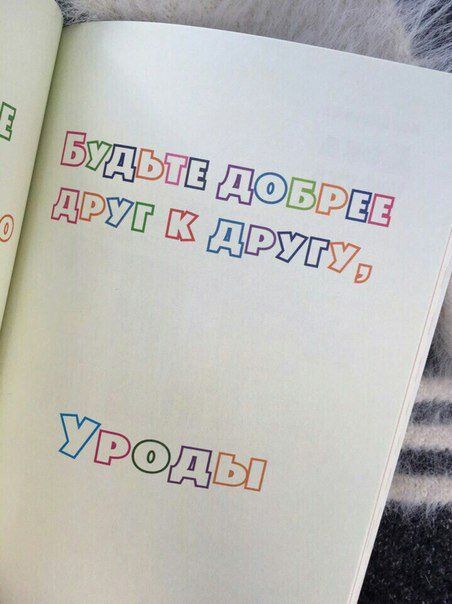 Будьте добрее
друг к другу,
Уроды